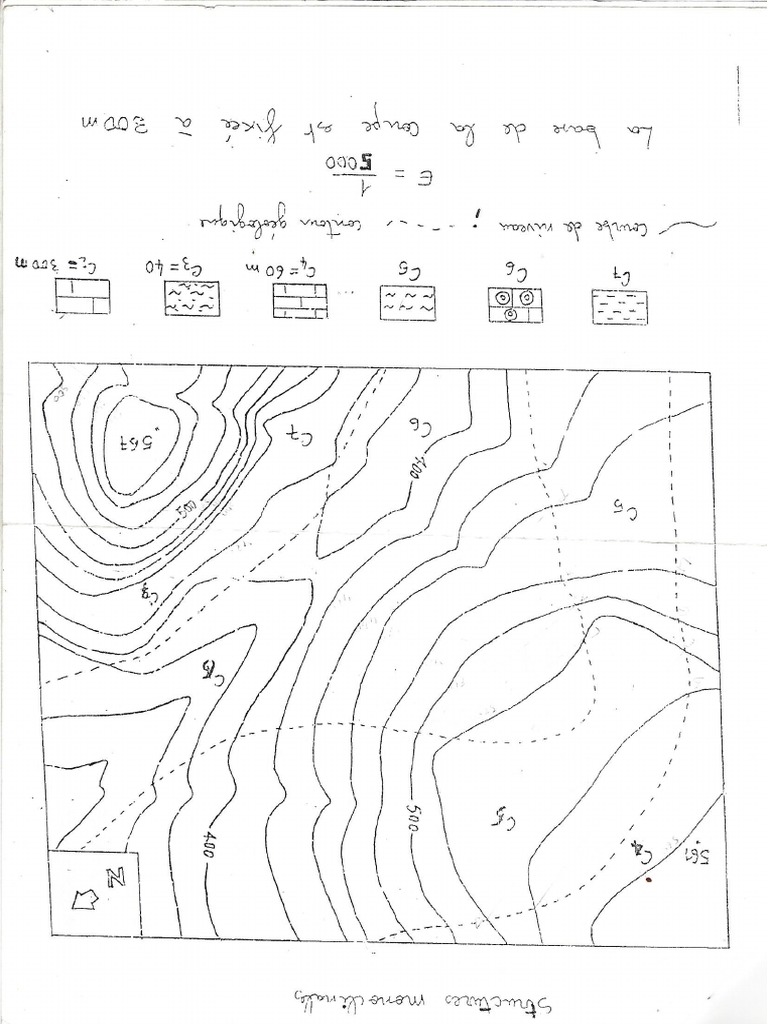 Structures monoclinales
N
561
C4
400
500
C5
C5
C5
500
C6
C7
567
400
500
C7
C6
C5
C4 = 60 m
C3 = 40
C2 = 300 m
Courbe de niveau ; - - - - , contour géologique
E = 1
5000
La base de la coupe est fixée à 300 m